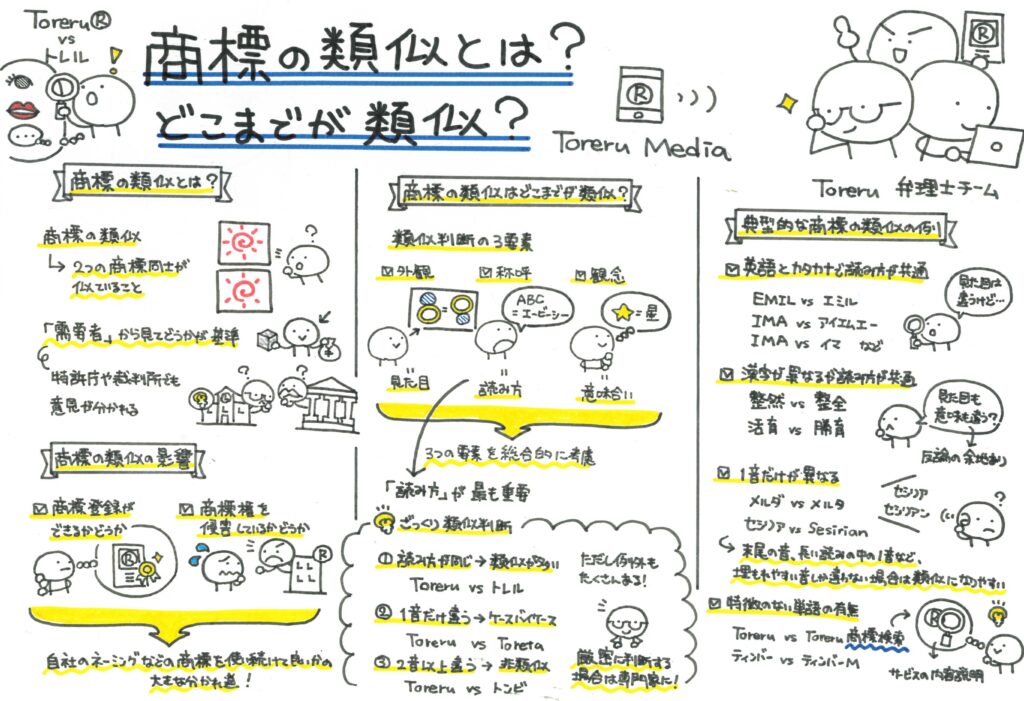 Toreru®
vs
トレル
商標の類似とは？
どこまでが類似？
®
Toreru Media
®
Toreru 弁理士チーム
商標の類似とは？
商標の類似
2つの商標同士が
似ていること
?
「需要者」から見てどうかが基準
特許庁や裁判所でも
意見が分かれる
?
?
商標の類似の影響
商標登録が
できるかどうか
商標権を
侵害しているかどうか
®
®
自社のネーミングなどの商標を使い続けて良いかの
大きな分かれ道！
商標の類似はどこまでが類似？
類似判断の3要素
外観
称呼
観念
ABC
=エービーシー
=星
見た目
読み方
意味合い
3つの要素を総合的に考慮
「読み方」が最も重要
ざっくり類似判断
① 読み方が同じ→類似が多い
Toreru vs トレル
② 1音だけ違う→ケースバイケース
Toreru vs Toreta
③ 2音以上違う→非類似
Toreru vs トンビ
ただし例外も
たくさんある！
厳密に判断する
場合は専門家に！
典型的な商標の類似の例
英語とカタカナで読み方が共通
EMIL vs エミル
IMA vs アイエムエー
IMA vs イマ など
見た目は
違うけど…
漢字が異なるが読み方が共通
整然 vs 整全
活育 vs 勝育
見た目も
意味も違う？
反論の余地あり
1音だけが異なる
メルダ vs メルタ
セシリア vs Sesirian
セシリア
セシリアン
?
末尾の音、長い読みの中の1音など、
埋もれやすい音しか違わない場合は類似になりやすい
特徴のない単語の有無
Toreru vs Toreru 商標検索
ティンバー vs ティンバーM
®
サービスの内容説明